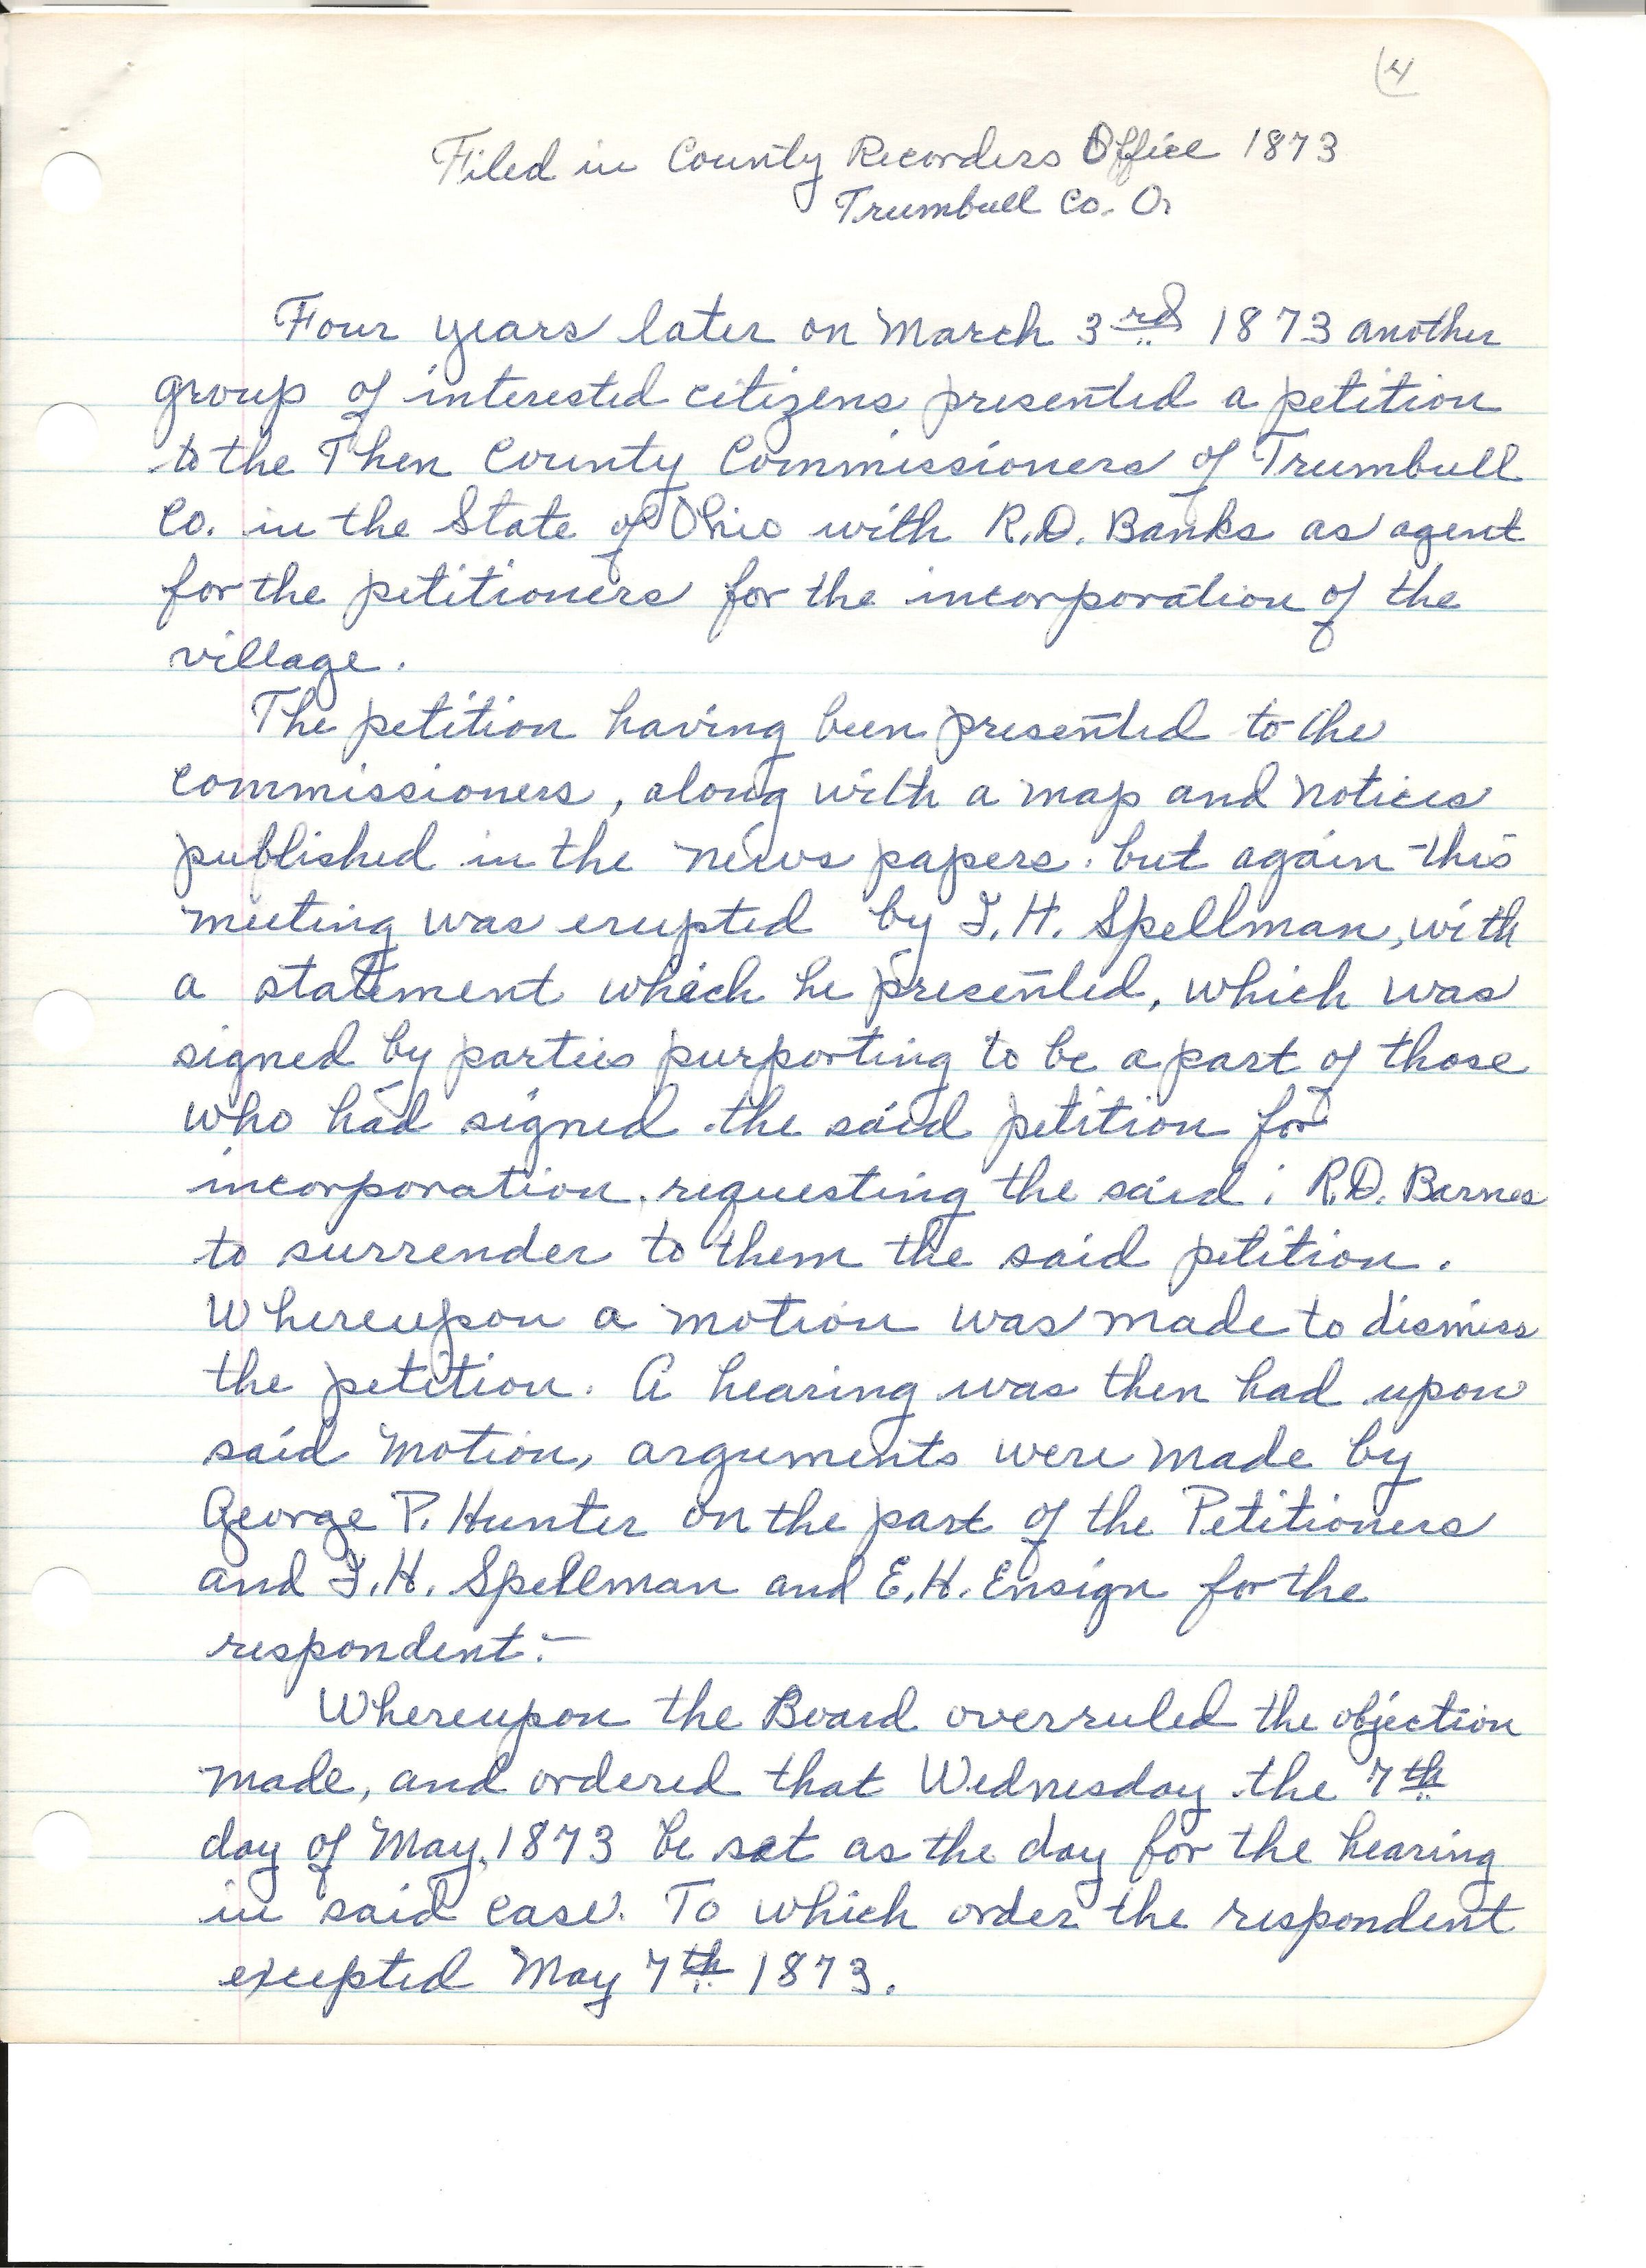 (4
Filed in County Recorders Office 1873
Trumbull Co. O.
Four years later on March 3rd 1873 another
group of interested citizens presented a petition
to the Then County Commissioners of Trumbull
Co. in the State of Ohio with R.D. Banks as agent
for the petitioners for the incorporation of the
village.
The petition having been presented to the
commissioners, along with a map and notices
published in the news papers. but again this
meeting was erupted by T.H. Spellman, with
a statement which he presented, which was
signed by parties purporting to be a part of those
who had signed the said petition for
incorporation, requesting the said. R.D. Barnes
to surrender to them the said petition.
Whereupon a motion was made to dismiss
the petition. A hearing was then had upon
said motion, arguments were made by
George P. Hunter on the part of the Petitioners
and T.H. Spellman and E.H. Ensign for the
respondent.-
Whereupon the Board overruled the objection
made, and ordered that Wednesday the 7th
day of May, 1873 be set as the day for the hearing
in said case. To which order the respondent
excepted May 7th 1873.